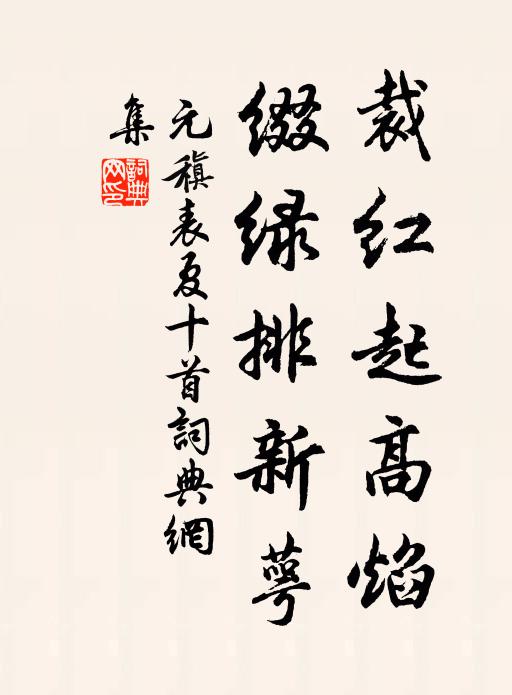 裁红起高焰
缀绿排新萼
元稹表夏十首詞典網
集
詞典
网印